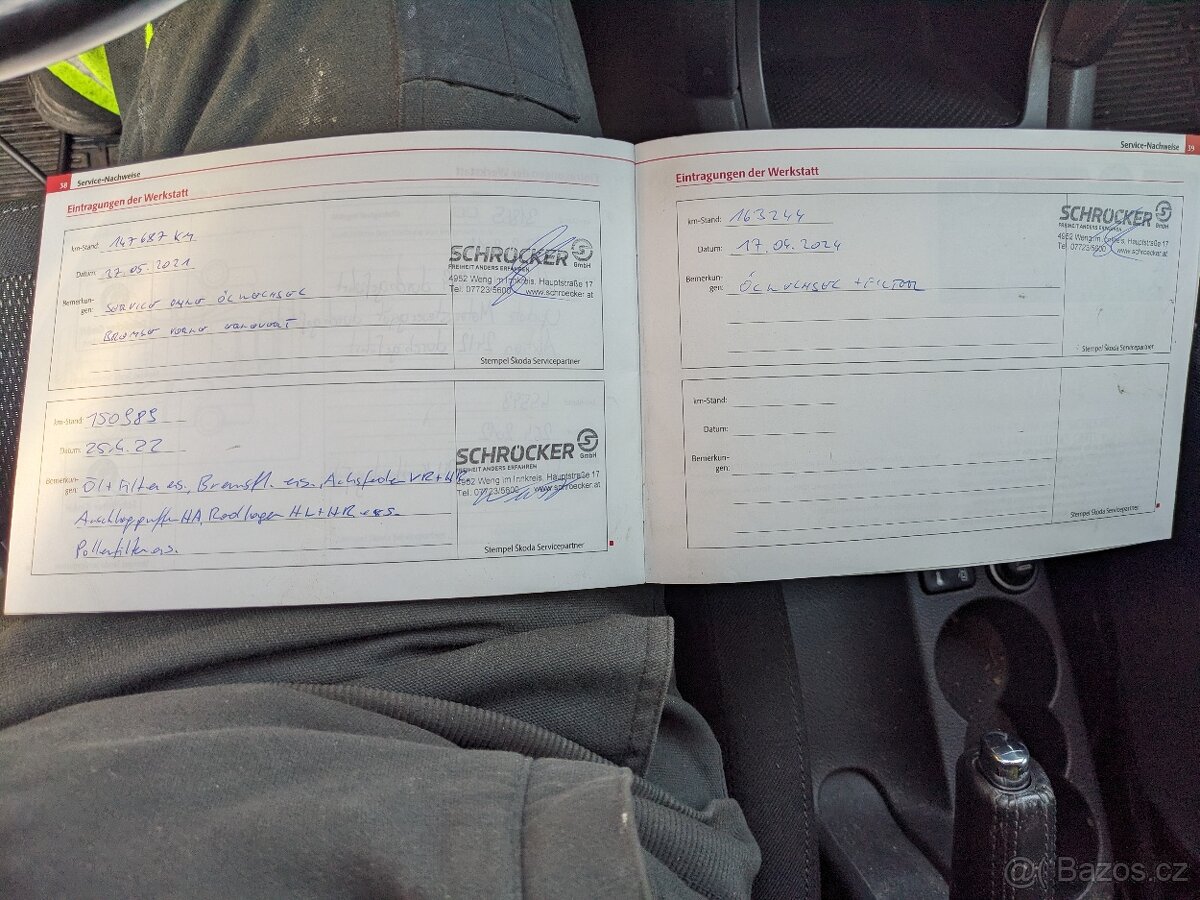 38 Service-Nachweise
Eintragungen der Werkstatt
km-Stand: 147687 KM
Datum: 27.05.2021
Bemerkun-
gen: SERVICE OHNE ÖLWECHSEL
BREMSE VORNE ERNEUERT
SCHRÖCKER GmbH
FREIHEIT ANDERS ERFAHREN
4952 Weng im Innkreis, Hauptstraße 17
Tel. 07723/5600 www.schroecker.at
Stempel Škoda Servicepartner
km-Stand: 150989
Datum: 25.4.22
Bemerkun-
gen: Öl + Filter ers., Bremsfl. ers., Achsfedern VR+
Anschlagpuffer HA, Radlager HL+HR ers.
Pollenfilter ers.
SCHRÖCKER GmbH
FREIHEIT ANDERS ERFAHREN
4952 Weng im Innkreis, Hauptstraße 17
Tel. 07723/5600 www.schroecker.at
Stempel Škoda Servicepartner
Service-Nachweise 39
Eintragungen der Werkstatt
km-Stand: 163244
Datum: 17.04.2024
Bemerkun-
gen: ÖLWECHSEL + FILTER
SCHRÖCKER GmbH
FREIHEIT ANDERS ERFAHREN
4952 Weng im Innkreis, Hauptstraße 17
Tel. 07723/5600 www.schroecker.at
Stempel Škoda Servicepartner
km-Stand:
Datum:
Bemerkun-
gen:
Stempel Škoda Servicepartner
Bazos.cz